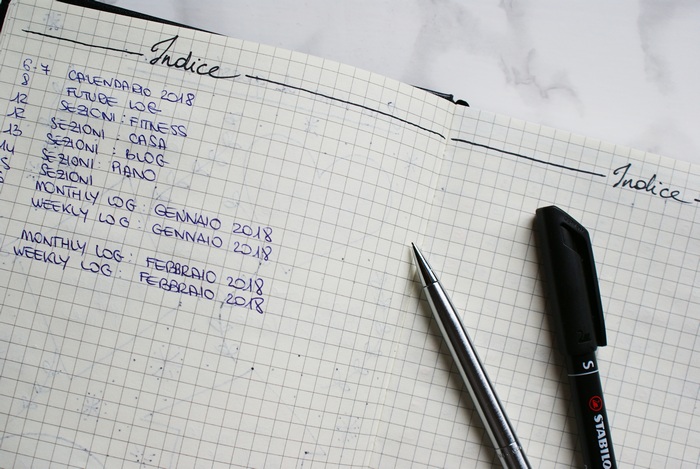 Indice
6-7 CALENDARIO 2018
8 FUTURE LOG
12 SEZIONI : FITNESS
12 SEZIONI : CASA
13 SEZIONI : BLOG
14 SEZIONI : PIANO
5 SEZIONI
MONTHLY LOG : GENNAIO 2018
WEEKLY LOG : GENNAIO 2018
MONTHLY LOG : FEBBRAIO 2018
WEEKLY LOG : FEBBRAIO 2018
Indice
S STABILO